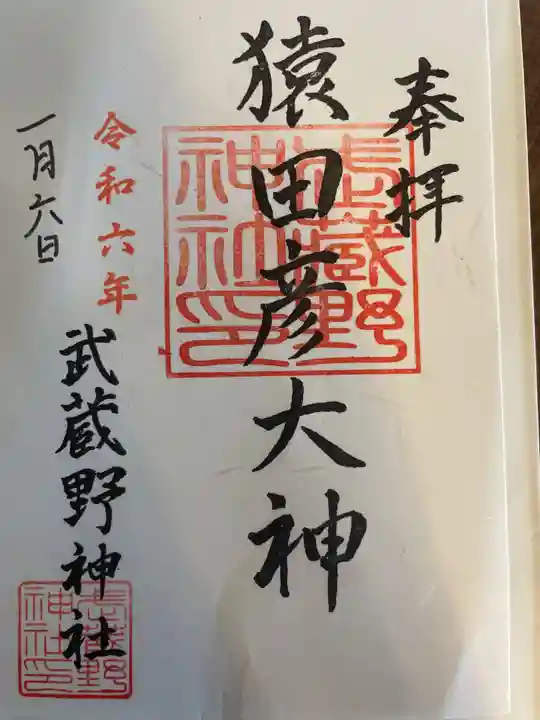 奉拝
猿田彦大神
武蔵野神社印
令和六年
一月六日
武蔵野神社
武蔵野神社印